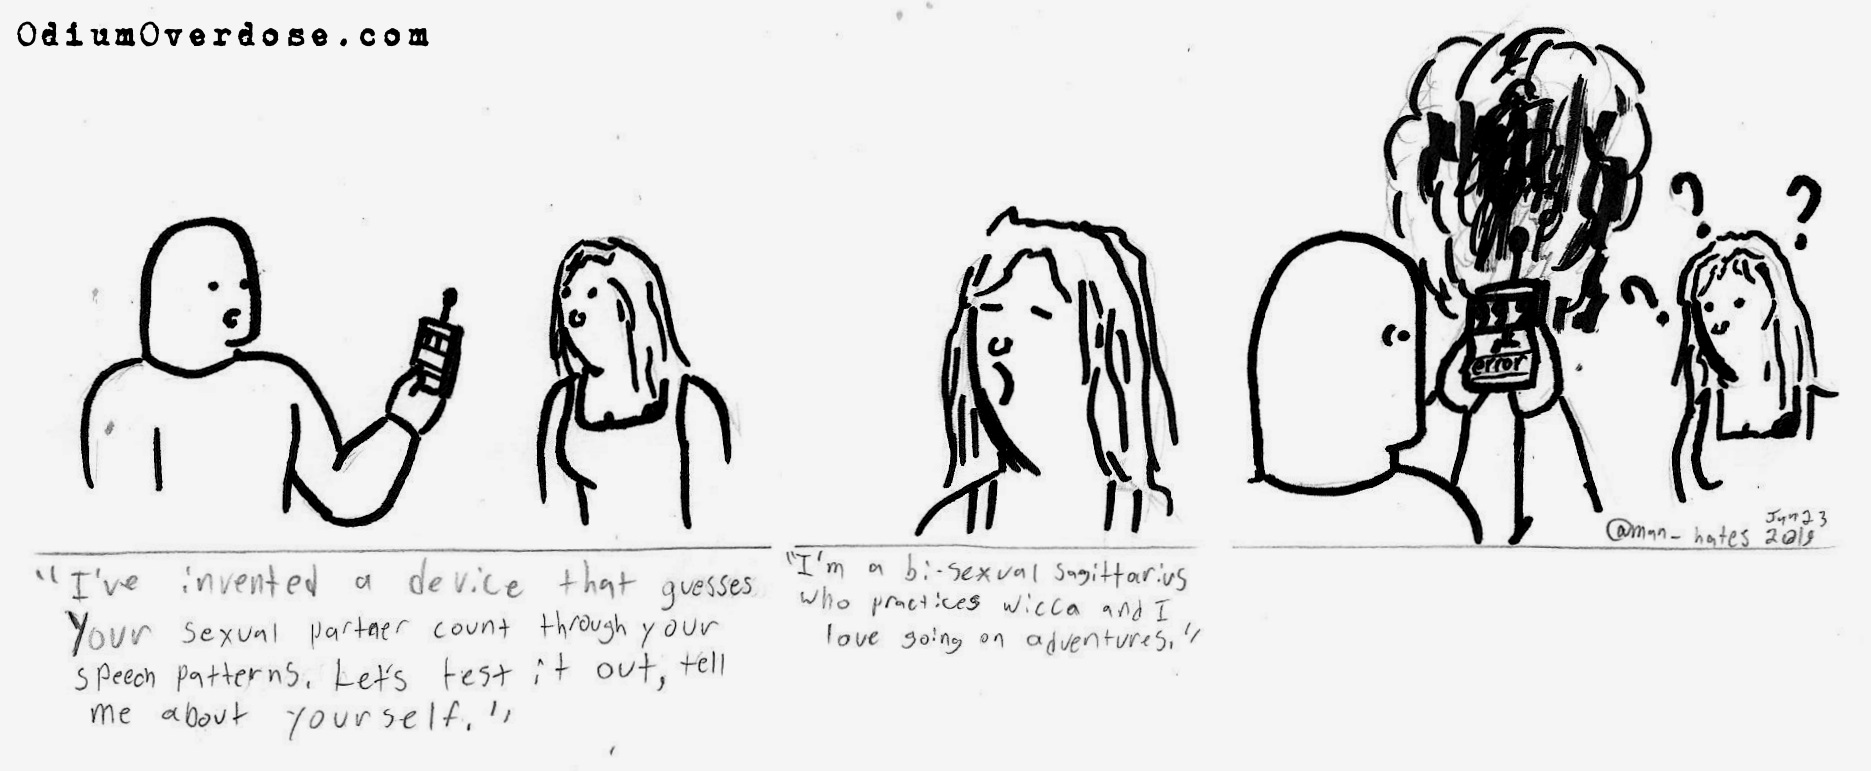 OdiumOverdose.com
"I've invented a device that guesses
Your sexual partner count through your
speech patterns. Let's test it out, tell
me about yourself."
"I'm a bi-sexual sagittarius
who practices wicca and I
love going on adventures."
? ?
?
999
error
@man_hates Jun 23
2019